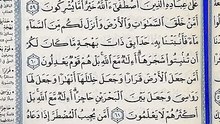 عَلَىٰ عِبَادِهِ ٱلَّذِينَ ٱصْطَفَىٰٓ ءَآللَّهُ خَيْرٌ أَمَّا يُشْرِكُونَ ٥٩
أَمَّنْ خَلَقَ ٱلسَّمَٰوَٰتِ وَٱلْأَرْضَ وَأَنزَلَ لَكُم مِّنَ ٱلسَّمَآءِ
مَآءً فَأَنۢبَتْنَا بِهِۦ حَدَآئِقَ ذَاتَ بَهْجَةٍ مَّا كَانَ لَكُمْ
أَن تُنۢبِتُوا۟ شَجَرَهَآ أَءِلَٰهٌ مَّعَ ٱللَّهِ بَلْ هُمْ قَوْمٌ يَعْدِلُونَ ٦٠
أَمَّن جَعَلَ ٱلْأَرْضَ قَرَارًا وَجَعَلَ خِلَٰلَهَآ أَنْهَٰرًا وَجَعَلَ لَهَا
رَوَٰسِىَ وَجَعَلَ بَيْنَ ٱلْبَحْرَيْنِ حَاجِزًا أَءِلَٰهٌ مَّعَ ٱللَّهِ بَلْ
أَكْثَرُهُمْ لَا يَعْلَمُونَ ٦١ أَمَّن يُجِيبُ ٱلْمُضْطَرَّ إِذَا دَعَاهُ